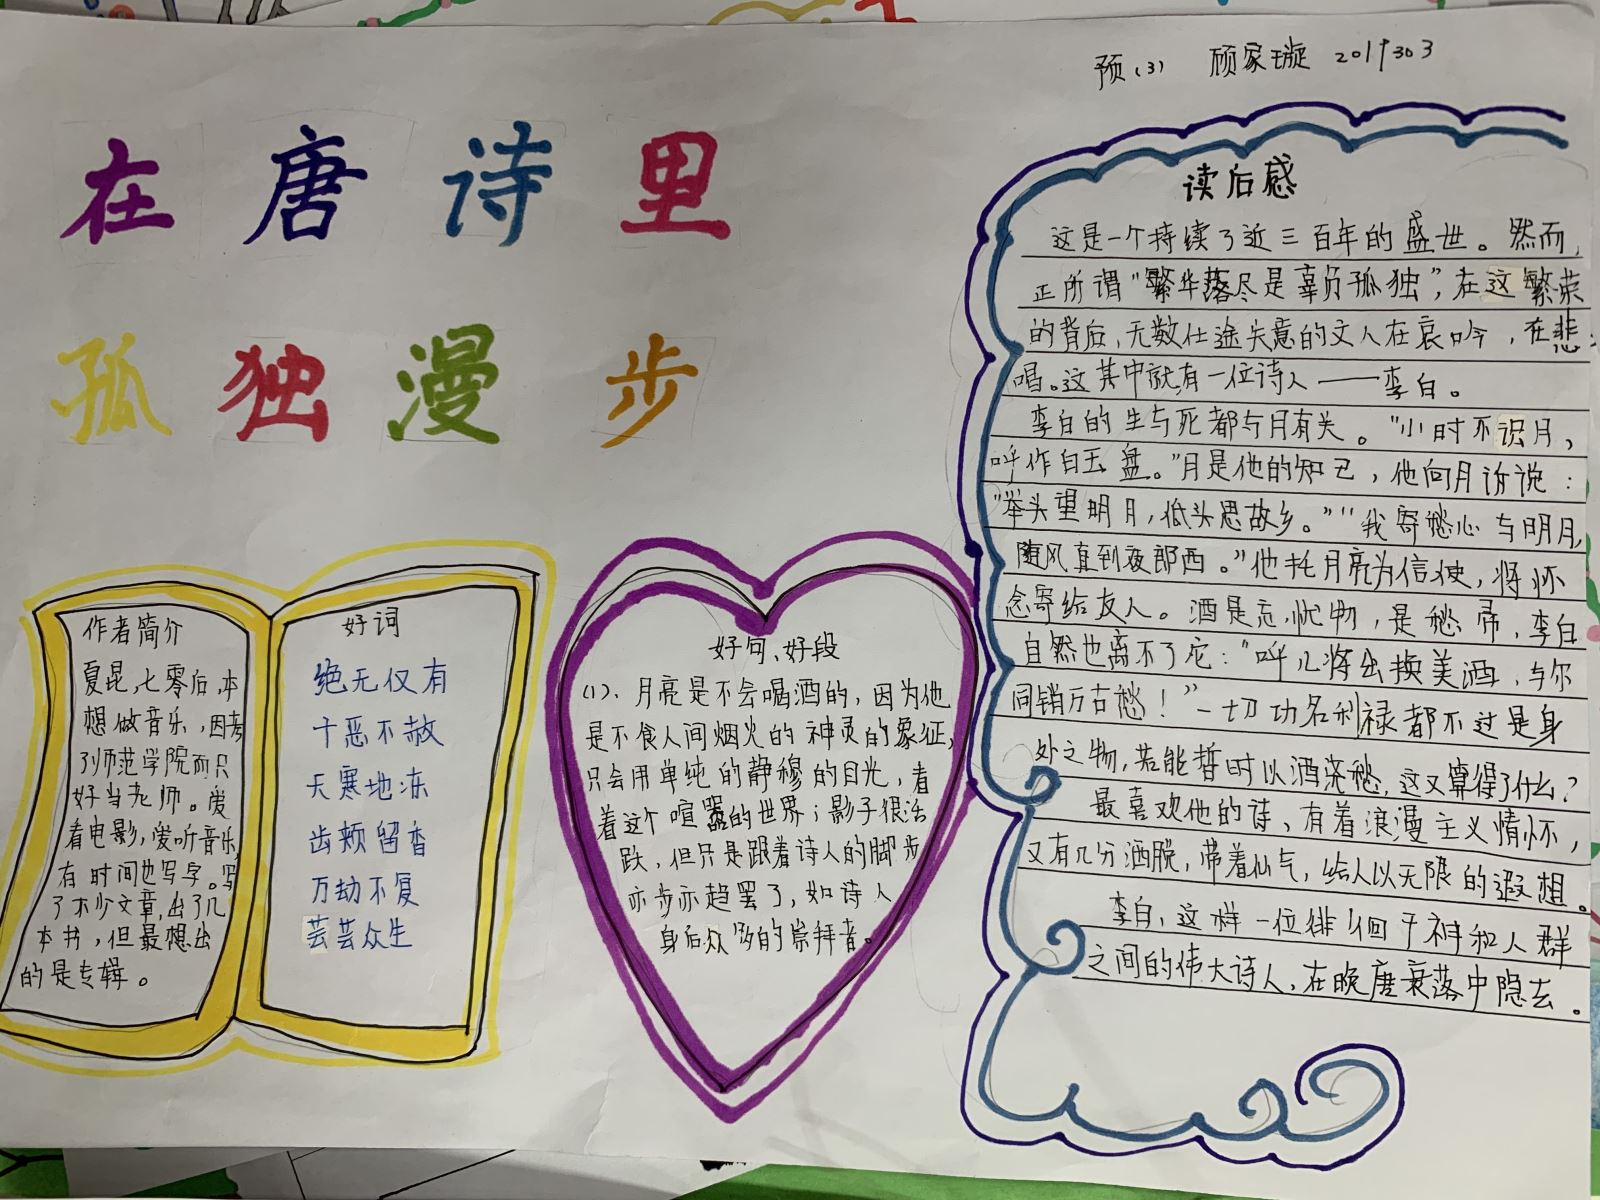 预(3) 顾家璇 2019303
在唐诗里
孤独漫步
作者简介
夏昆,七零后,本
想做音乐,因考
了师范学院而只
好当老师。爱
看电影,爱听音乐,
有时间也写字。写
了不少文章,出了几
本书,但最想出
的是专辑。
好词
绝无仅有
十恶不赦
天寒地冻
齿颊留香
万劫不复
芸芸众生
好句、好段
(1)、月亮是不会喝酒的,因为他
是不食人间烟火的神灵的象征,
只会用单纯的静穆的目光,看
着这个喧嚣的世界;影子很活
跃,但只是跟着诗人的脚步
亦步亦趋罢了,如诗人
身后众多的崇拜者。
读后感
这是一个持续了近三百年的盛世。然而,
正所谓“繁华落尽是辜负孤独”,在这繁荣
的背后,无数仕途失意的文人在哀吟,在悲
唱。这其中就有一位诗人——李白。
李白的生与死都与月有关。“小时不识月,
呼作白玉盘。”月是他的知己,他向月诉说:
“举头望明月,低头思故乡。”“我寄愁心与明月,
随风直到夜郎西。”他托月亮为信使,将怀
念寄给友人。酒是忘忧物,是愁帚,李白
自然也离不了它:“呼儿将出换美酒,与尔
同销万古愁!”一切功名利禄都不过是身
外之物,若能暂时以酒浇愁,这又算得了什么?
最喜欢他的诗,有着浪漫主义情怀,
又有几分洒脱,带着仙气,给人以无限的遐想。
李白,这样一位徘徊于神和人群
之间的伟大诗人,在晚唐衰落中隐去。